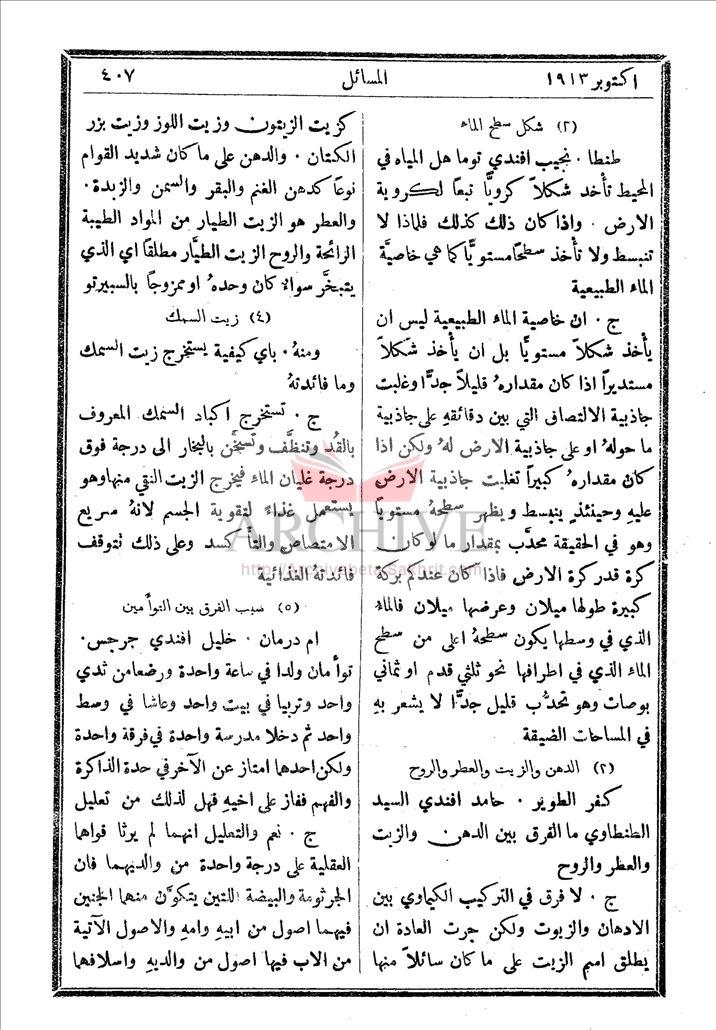 اكتوبر ١٩١٣
المسائل
٤٠٧
(٢) شكل سطح الماء
طنطا ٠ نجيب افندي توما هل المياه في
المحيط تأخذ شكلاً كرويًّا تبعًا لكروية
الارض ٠ واذا كان ذلك كذلك فلماذا لا
تنبسط ولا تأخذ سطحًا مستويًّا كما هي خاصيَّة
الماء الطبيعية
ج ٠ ان خاصية الماء الطبيعية ليس ان
يأخذ شكلاً مستويًّا بل ان يأخذ شكلاً
مستديرًا اذا كان مقدارهُ قليلاً جدًّا وغلبت
جاذبية الالتصاق التي بين دقائقهِ على جاذبية
ما حولهُ او على جاذبية الارض لهُ ولكن اذا
كان مقدارهُ كبيرًا تغلبت جاذبية الارض
عليهِ وحينئذٍ ينبسط ويظهر سطحهُ مستويًا
وهو في الحقيقة محدَّب بمقدار ما لو كان
كرة قدر كرة الارض فاذا كان عندكم بركة
كبيرة طولها ميلان وعرضها ميلان فالماء
الذي في وسطها يكون سطحهُ اعلى من سطح
الماء الذي في اطرافها نحو ثلثي قدم او ثماني
بوصات وهو تحدُّب قليل جدًّا لا يشعر بهِ
في المساحات الضيقة
(٢) الدهن والزيت والعطر والروح
كفر الطوير ٠ حامد افندي السيد
الطنطاوي ما الفرق بين الدهن والزيت
والعطر والروح
ج ٠ لا فرق في التركيب الكيماوي بين
الادهان والزيوت ولكن جرت العادة ان
يطلق اسم الزيت على ما كان سائلاً منها
كزيت الزيتون وزيت اللوز وزيت بزر
الكتان ٠ والدهن على ما كان شديد القوام
نوعًا كدهن الغنم والبقر والسمن والزبدة ٠
والعطر هو الزيت الطيار من المواد الطيبة
الرائحة والروح الزيت الطيَّار مطلقًا اي الذي
يتبخَّر سواءٌ كان وحدهُ او ممزوجًا بالسبيرتو
(٤) زيت السمك
ومنهُ ٠ باي كيفية يستخرج زيت السمك
وما فائدتهُ
ج ٠ تستخرج اكباد السمك المعروف
بالقُد وتنظَّف وتسخَّن بالبخار الى درجة فوق
درجة غليان الماء فيخرج الزيت النقي منها وهو
يستعمل غذاءً لتقوية الجسم لانهُ سريع
الامتصاص والتأكسد وعلى ذلك تتوقف
فائدتهُ الغذائية
(٥) سبب الفرق بين التوأمين
ام درمان ٠ خليل افندي جرجس ٠
توأمان ولدا في ساعة واحدة ورضعا من ثدي
واحد وتربيا في بيت واحد وعاشا في وسط
واحد ثم دخلا مدرسة واحدة في فرقة واحدة
ولكن احدهما امتاز عن الآخر في حدة الذاكرة
والفهم ففاز على اخيهِ فهل لذلك من تعليل
ج ٠ نعم والتعليل انهما لم يرثا قواها
العقلية على درجة واحدة من والديهما فان
الجرثومة والبيضة اللتين يتكوَّن منهما الجنين
فيهما اصول من ابيهِ وامهِ والاصول الآتية
من الاب فيها اصول من والديهِ واسلافهما
ARCHIVE
http://Archivebeta.Sakhrit.com